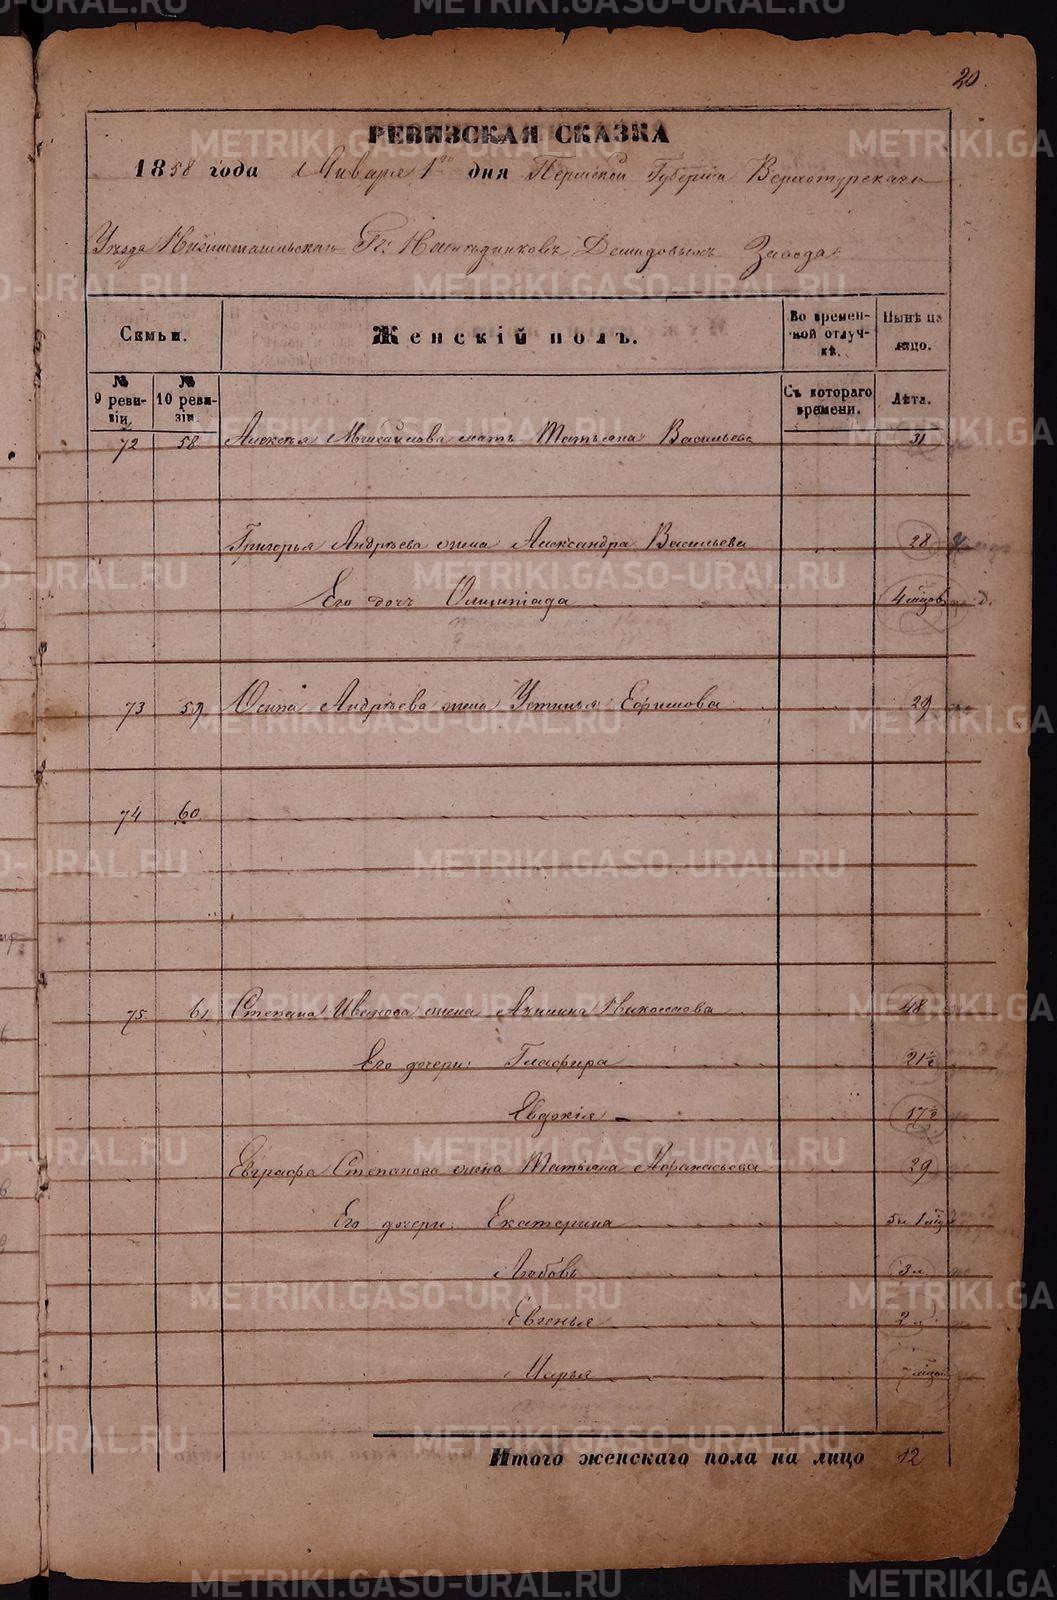 20.
РЕВИЗСКАЯ СКАЗКА
1858 года Января 1го дня Пермской Губернiи Верхотурскаго
Уѣзда Нижнетагильскаго Гг. Наслѣдниковъ Демидовыхъ Завода
Семьи.
Женскiй полъ.
Во времен-
ной отлуч-
кѣ.
Нынѣ на
лицо.
№
9 реви-
зiи
№
10 реви-
зiи.
Съ котораго
времени.
Лѣта.
72 58 Алексѣя Михайлова мать Татьяна Васильева 31
Григорья Андрѣева жена Александра Васильева 28
Его дочь Олимпiада 4 мѣсцовъ
73 59 Осипа Андрѣева жена Устинья Ефимова 29
74 60
75 61 Степана Иванова жена Акилина 48
Его дочери: Глафира 21½
Евдокiя 17½
Евграфа Степанова жена Татьяна Афанасьева 29
Его дочери: Екатерина
Любовь 3 л
Евгенья 2 л
Марья 7 мѣсцовъ
Итого женскаго пола на лицо 12
METRIKI.GASO-URAL.RU